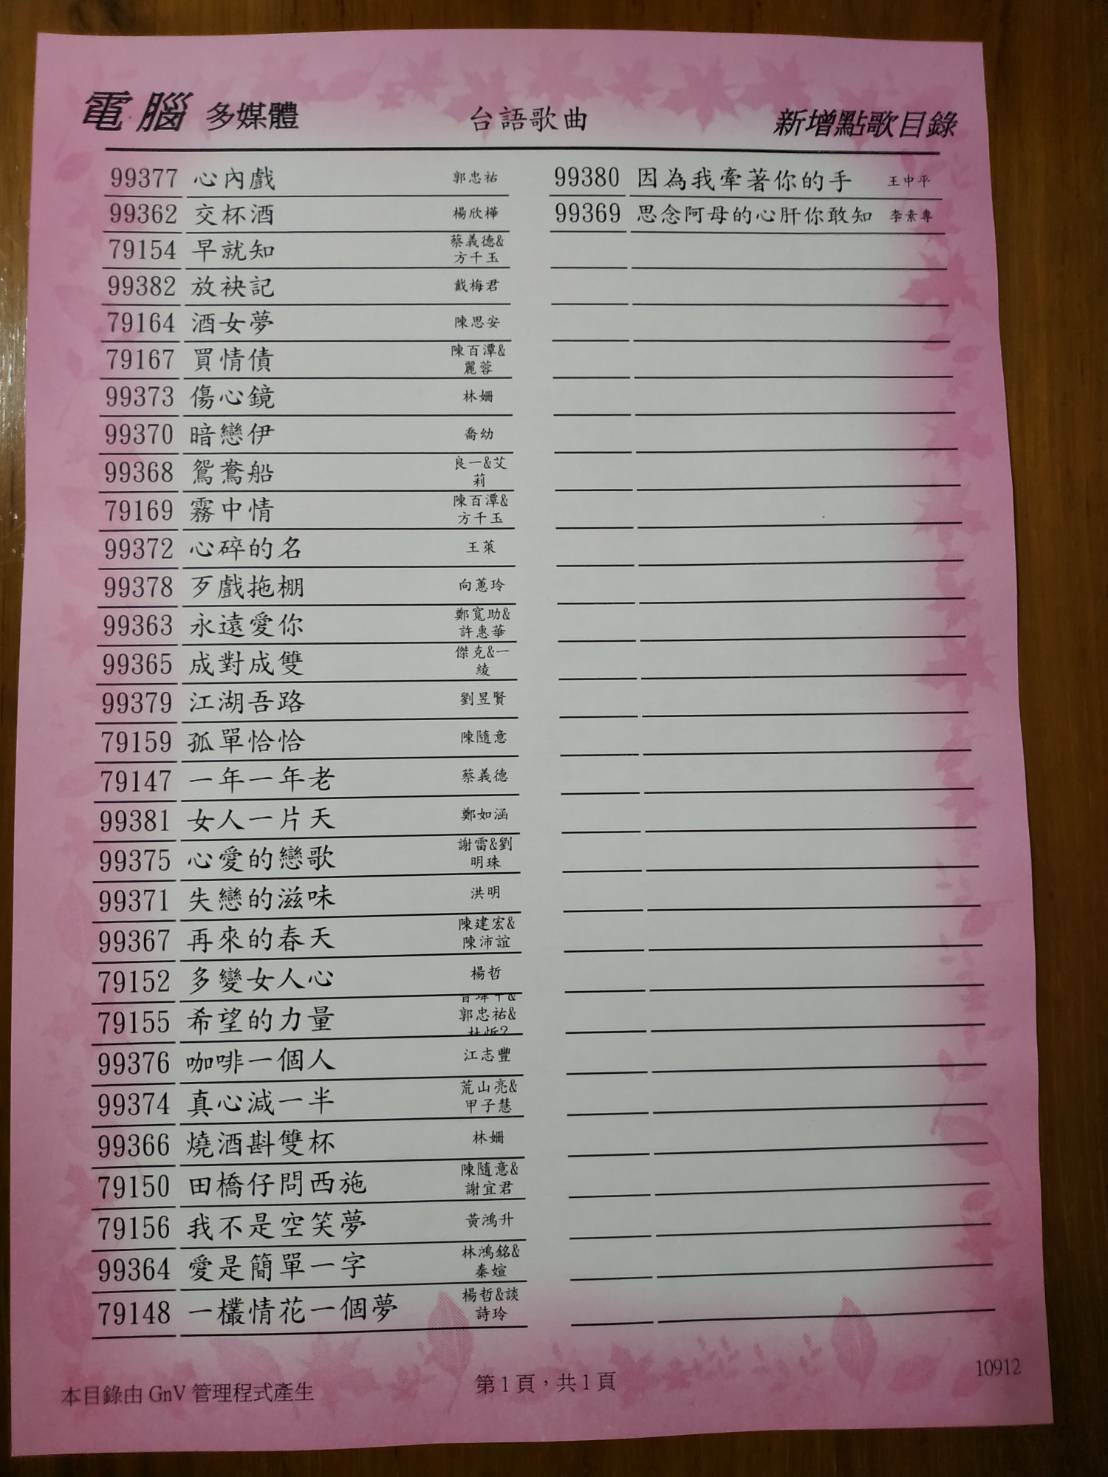 電腦 多媒體 台語歌曲 新增點歌目錄
99377 心內戲 郭忠祐
99362 交杯酒 楊欣樺
79154 早就知 蔡義德&
方千玉
99382 放袂記 戴梅君
79164 酒女夢 陳思安
79167 買情債 陳百潭&
麗蓉
99373 傷心鏡 林姍
99370 暗戀伊 喬幼
99368 鴛鴦船 良一&艾
莉
79169 霧中情 陳百潭&
方千玉
99372 心碎的名 王萊
99378 歹戲拖棚 向蕙玲
99363 永遠愛你 鄭寬助&
許惠華
99365 成對成雙 傑克&一
綾
99379 江湖吾路 劉昱賢
79159 孤單恰恰 陳隨意
79147 一年一年老 蔡義德
99381 女人一片天 鄭如涵
99375 心愛的戀歌 謝雷&劉
明珠
99371 失戀的滋味 洪明
99367 再來的春天 陳建宏&
陳沛誼
79152 多變女人心 楊哲
79155 希望的力量 郭忠祐&
99376 咖啡一個人 江志豐
99374 真心減一半 荒山亮&
甲子慧
99366 燒酒斟雙杯 林姍
79150 田橋仔問西施 陳隨意&
謝宜君
79156 我不是空笑夢 黃鴻升
99364 愛是簡單一字 林鴻銘&
秦媗
79148 一欉情花一個夢 楊哲&談
詩玲
99380 因為我牽著你的手 王中平
99369 思念阿母的心肝你敢知 李素專
本目錄由 GnV 管理程式產生 第1頁，共1頁 10912